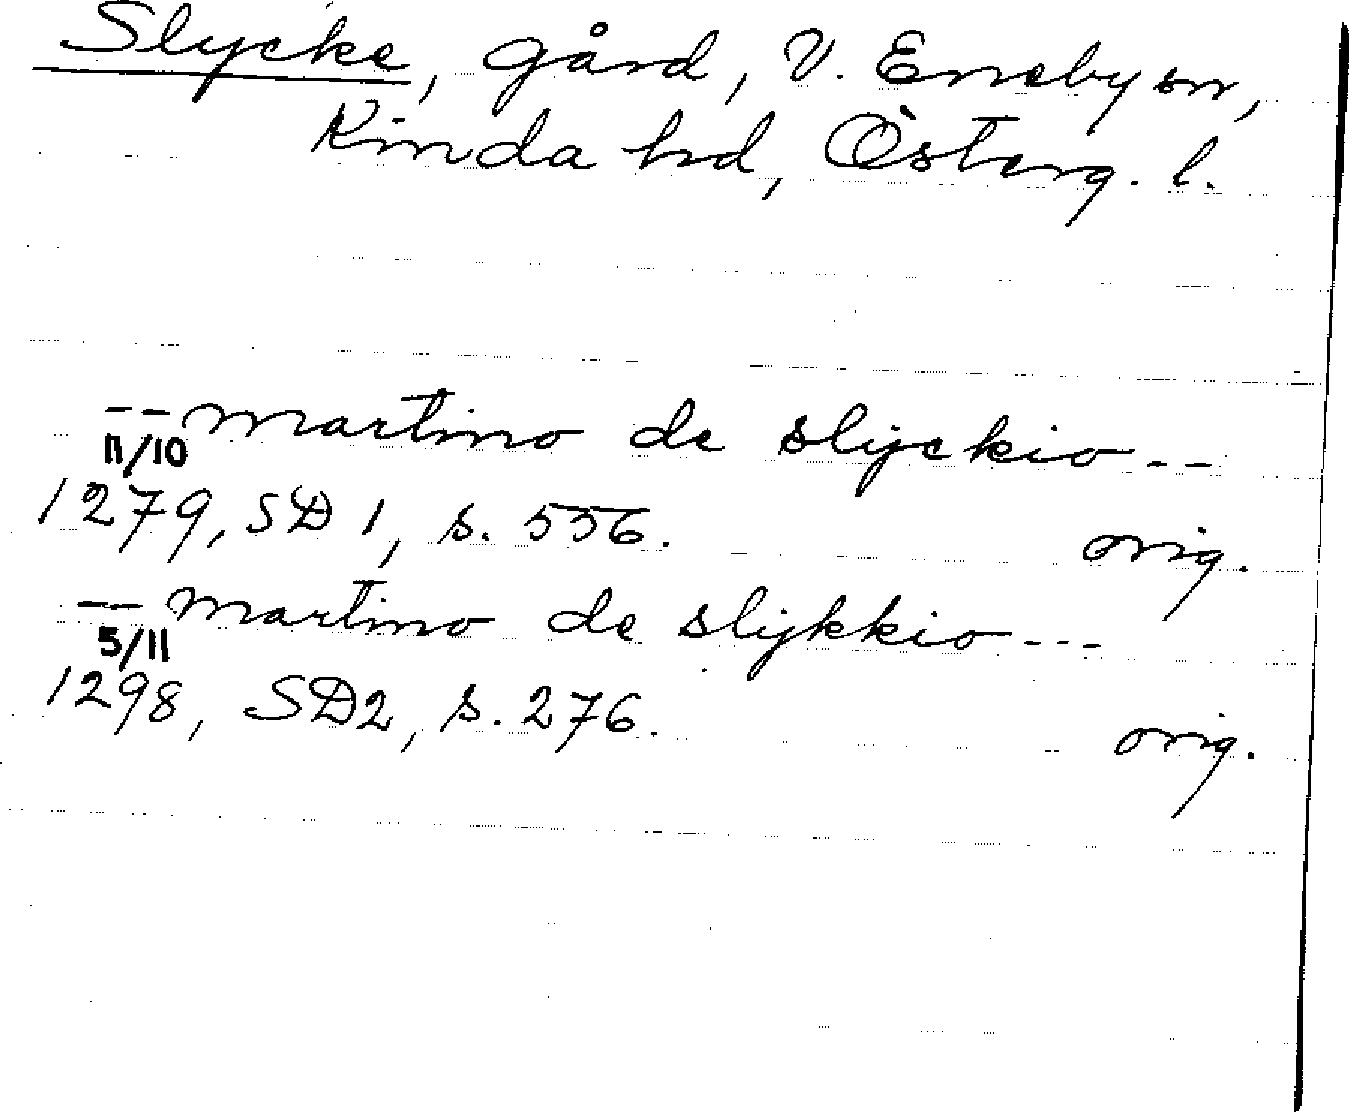 Slycke, gård, V. Eneby sn,
Kinda hd, Österg. l.
-- martino de slyckio --
11/10
1279, SD 1, s. 556. orig.
-- martino de slykkio ---
5/11
1298, SD2, s. 276. orig.